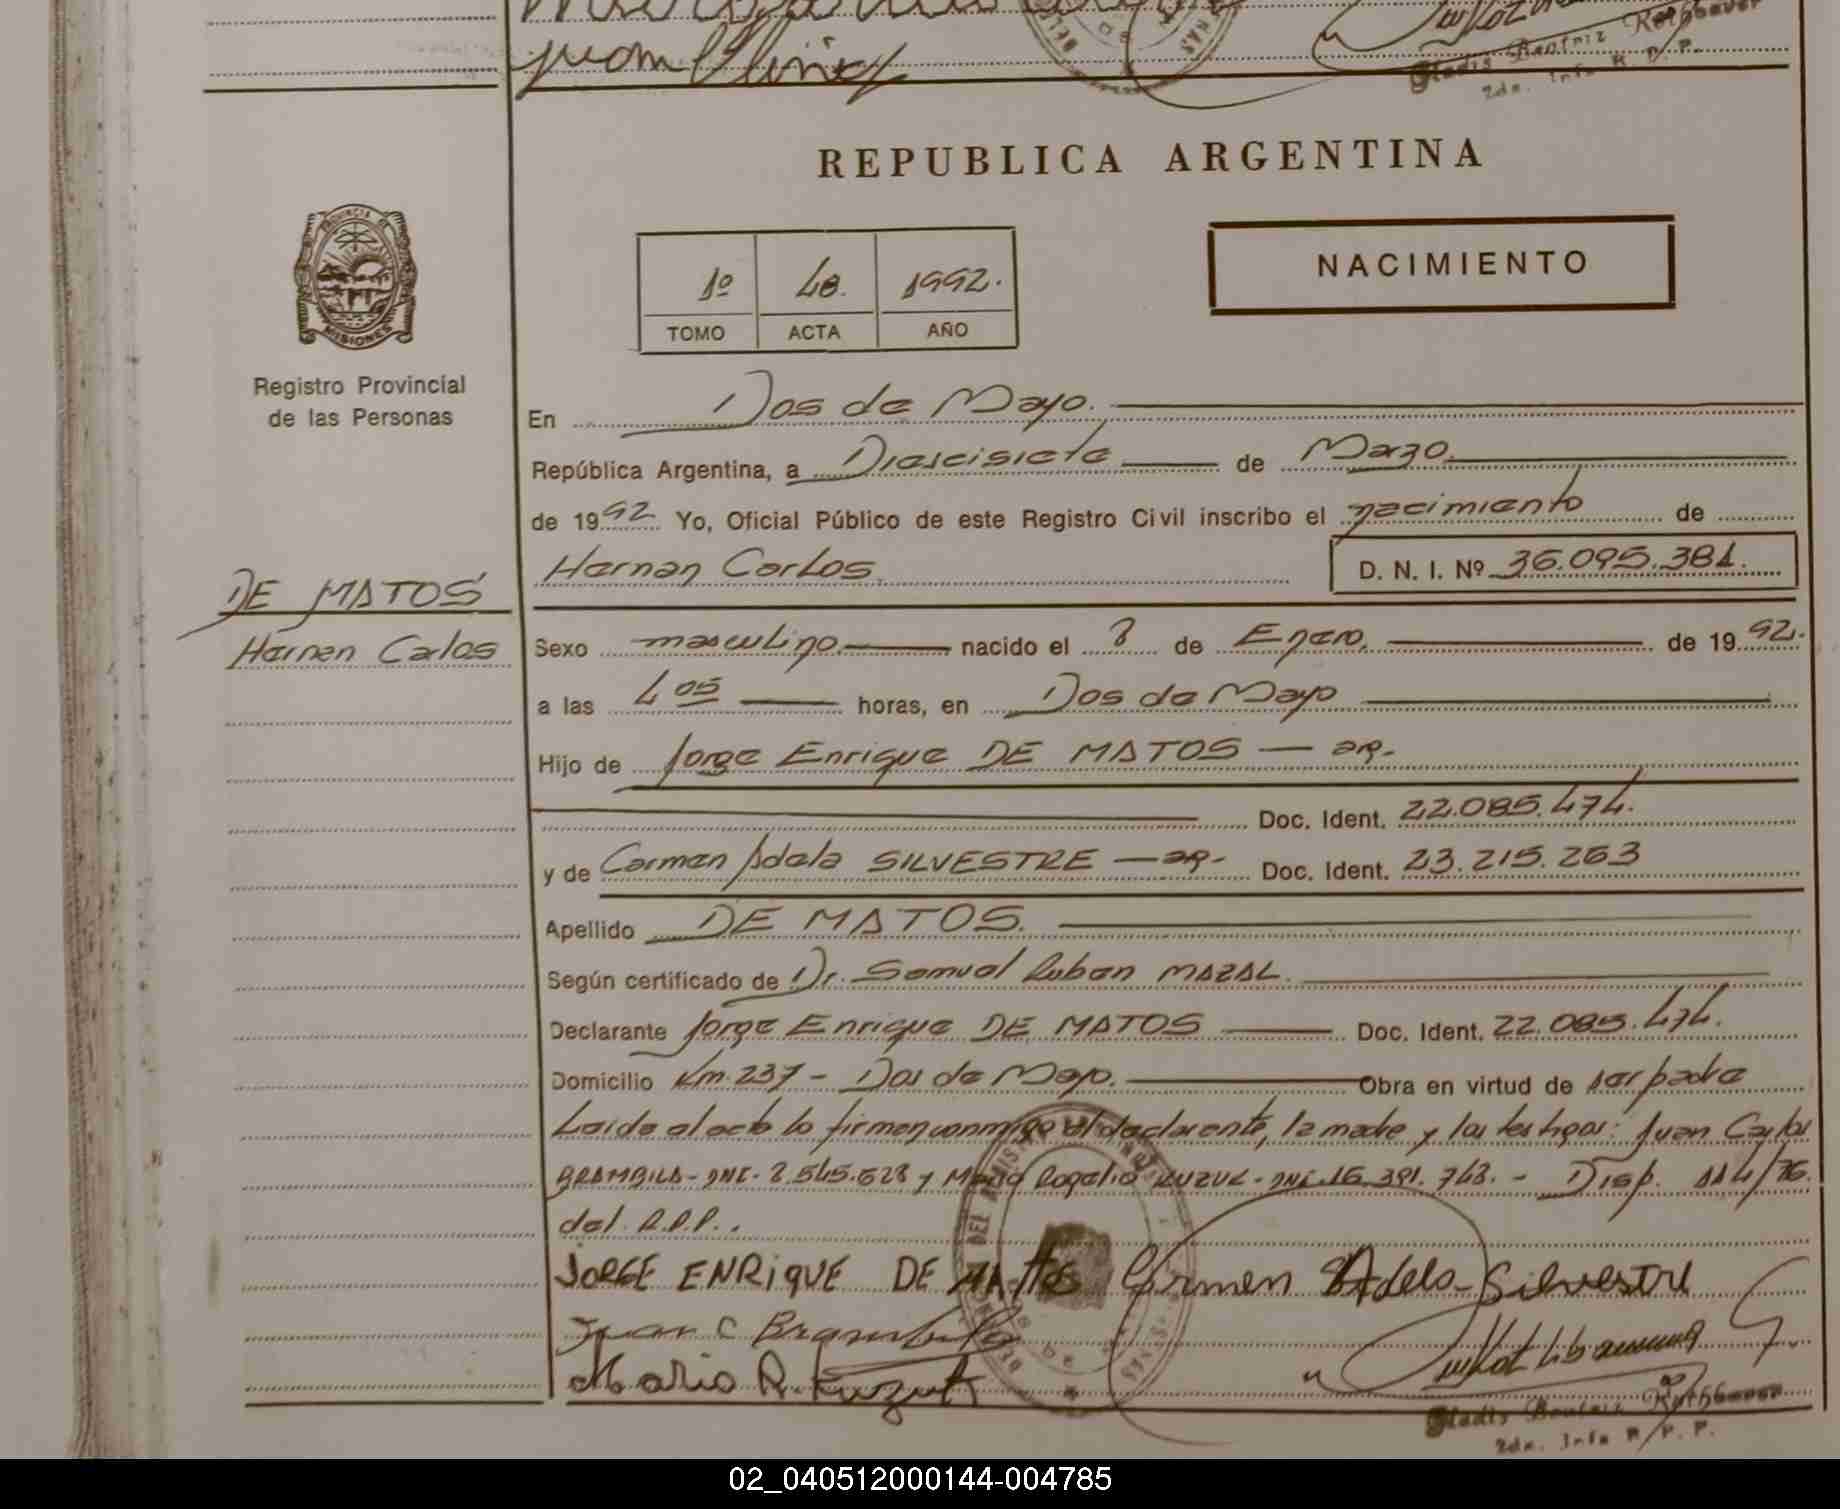 REPUBLICA ARGENTINA
NACIMIENTO
1º 48. 1992.
TOMO ACTA AÑO
PROVINCIA D
MISIONES
Registro Provincial
de las Personas
DE MATOS
Hernan Carlos
En Dos de Mayo.
República Argentina, a Diescisiete de Marzo.
de 1992 Yo, Oficial Público de este Registro Civil inscribo el nacimiento de
Hernan Carlos D. N. I. Nº 36.095.381.
Sexo masculino nacido el 8 de Enero. de 1992.
a las 4 05 horas, en Dos de Mayo
Hijo de Jorge Enrique DE MATOS — ar.
Doc. Ident. 22.085.474.
y de Carmen Adela SILVESTRE — ar- Doc. Ident. 23.215.263
Apellido DE MATOS.
Según certificado de Dr. Samuel Ruben MAZAL.
Declarante Jorge Enrique DE MATOS Doc. Ident. 22.085.474.
Domicilio Km. 237 - Dos de Mayo. Obra en virtud de ser padre
Leida el acta lo firman conmigo el declarante, la madre y los testigos: Juan Carlos
BRAMBILA - DNI. 8.545.628 y Mario Rogelio KUZUK - DNI. 16.391.748. - Disp. 114/76.
del R.P.P..
JORGE ENRiQUE DE MAttos Carmen Adela Silvestre
Juan C Brambila
Mario R. Kuzuk
Gladis Beatriz Rothbauer
2da. Infa R. P. P.
02_040512000144-004785